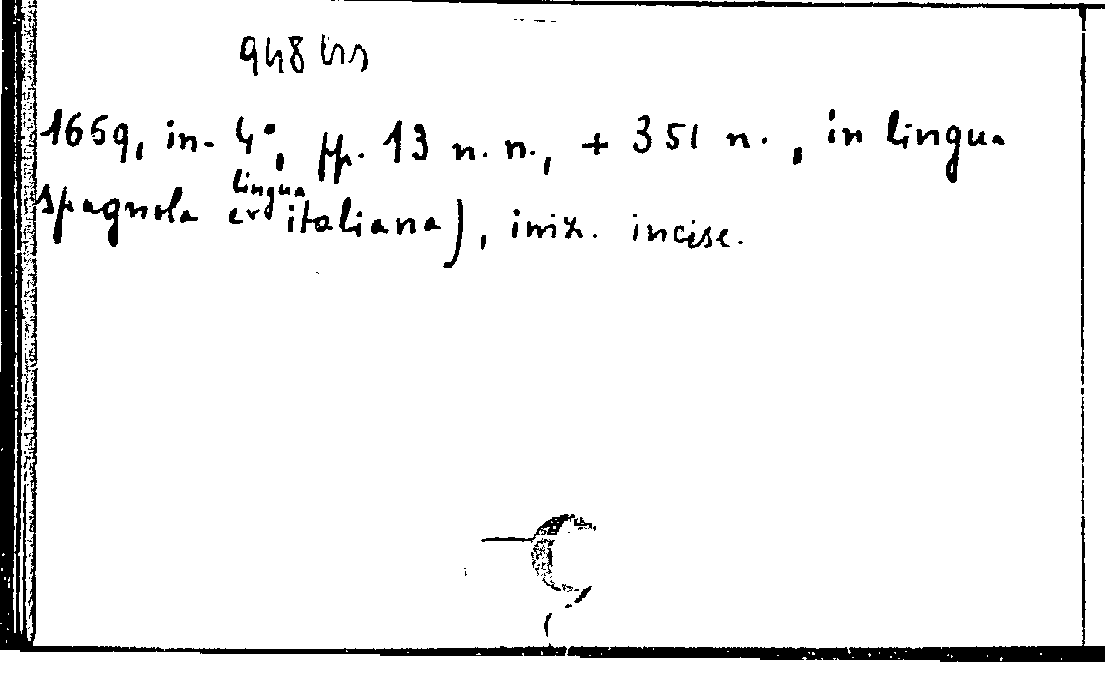 948 bis
1659, in-4°, pp. 13 n. n., + 351 n., in lingua
spagnola ed lingua italiana), iniz. incise.